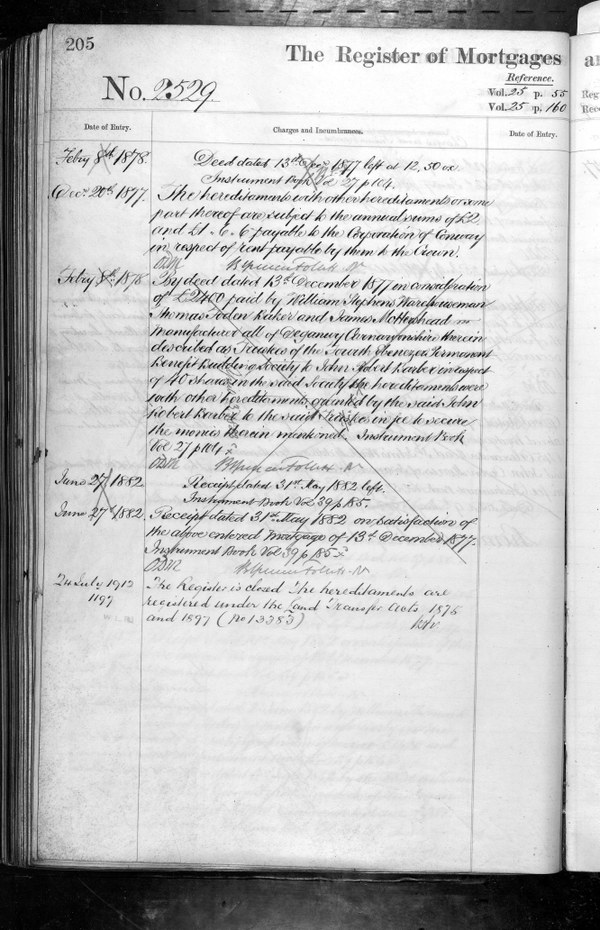 205
The Register of Mortgages
Reference.
No. 2529.
Vol. 25 p. 55
Vol. 25 p. 160
Date of Entry.
Charges and Incumbrances.
Date of Entry.
Febry 8th 1878.
Deed dated 13th Decr 1877 left at 12,50
Instrument Book Vol 27 p 104.
Decr 20th 1877.
The hereditaments with other hereditaments or some
part thereof are subject to the annual sums of £2
and £1. 6. 6 payable to the Corporation of Conway
in respect of rent payable by them to the Crown.
Febry 8th 1878
By deed dated 13th December 1877 in consideration
of £2400 paid by William Stephens Warehouseman
Thomas Baker and James
Manufacturer all of Deganwy Carnarvonshire therein
described as Trustees of the Fourth Ebenezer Permanent
Benefit Building Society to John Robert Barbor in respect
of 40 shares in the said Society the hereditaments were
with other hereditaments granted by the said John
Robert Barbor to the said Trustees in fee to secure
the monies therein mentioned. Instrument Book
Vol 27 p 104
June 27 1882
Receipt dated 31st May 1882 left.
Instrument Book Vol 39 p 185.
June 27th 1882.
Receipt dated 31st May 1882 on satisfaction of
the above entered mortgage of 13th December 1877.
Instrument Book Vol 39 p 185
24 July 1912
1197
The Register is closed The hereditaments are
registered under the Land Transfer Acts 1875
and 1897 (No 13383)